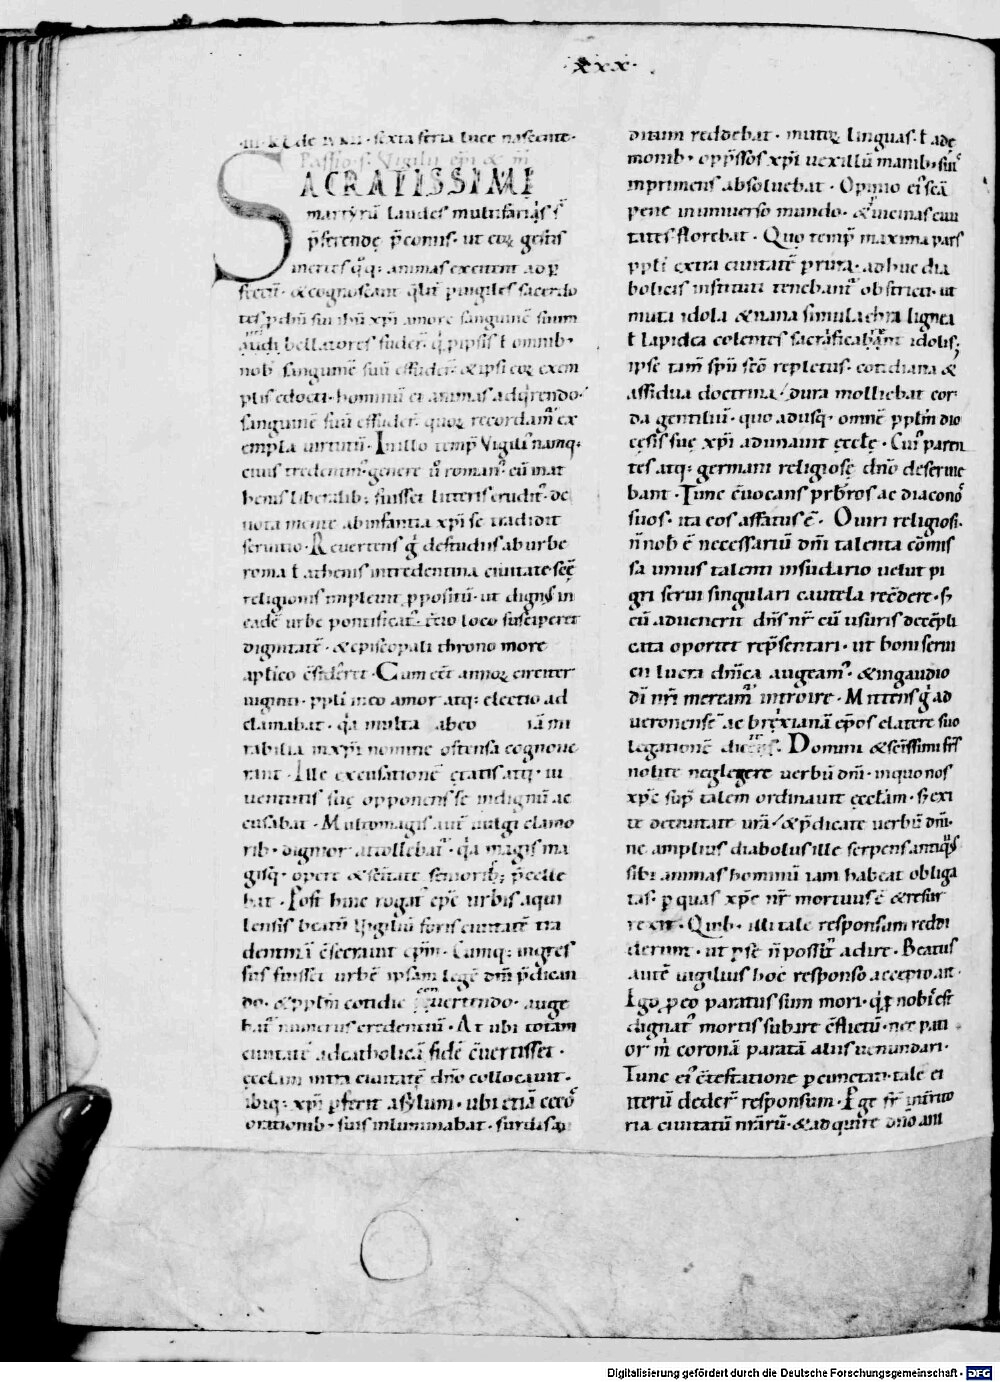 ·xxx·
·III·KL·de IVNII· sexta feria luce nascente·
Passio s. Vigilii ep̄i & m̄
SACRATISSIMI
martyrū laudes multifariās
p̄ferende p̄conus· ut eoꝝ gestis
inertes q̄q; animas excitent ad
fectū· & cognoscant q̄lit pugiles sacerdo
tes xp̄i amore sanguinē suum
bellatores fuder̄ q̄ p ipsis ł omnib·
nob̄ sanguinē suū effuder̄· & ipsi eoꝝ exem
plis edocti· hominū ei animas adq̄rendo·
sanguinē suū effuder̄· quoꝝ recordam̄ ex
empla virtutū· In illo temp̄ Vigiliꝰ namq·
ciuis tredentinꝰ· genere ū romanꝰ· cū mat
henis liberalib; fuisset litteris eruditꝰ· de
uota mente ab infantia xp̄i se tradidit
seruitio· Reuertens ḡ de studiis ab urbe
roma ł athenis in tredentina ciuitate sc̄ę
religionis impleuit p̄positū· ut dignꝰ in
eadē urbe pontificatꝰ loco susciperet
dignitatē· & episcopali throno more
aplico c̄sideret· Cum eēt annoꝝ circiter
uiginti· ppłi in eo amor atq; electio ad
clamabat· q̄a multa ab eo iā mi
rabilia in xp̄i nomine ostensa cognoue
rant· Ille excusationē ętatis atq· iu
uentutis suę opponens se indignū ac
cusabat· Multo magis autē uulgi clamo
rib· dignior attollebatꝰ· q̄a magis ma
gisq· opere & sc̄itate seniorib; p̄celle
bat· Post hinc rogatꝰ ep̄c urbis aqui
lensis beatū Vigiliū foris ciuitatē tra
dentinā c̄secrauit ep̄m· Cumq; ingres
sus fuisset urbē ipsam legē dn̄i p̄dican
do· & ppłm cotidie conuertendo· auge
batꝰ numerus credentiū· At ubi totam
ciuitatē ad catholicā fidē c̄uertisset·
ęcclam intra ciuitatē dn̄o collocauit·
ibiq; xp̄i p̄ferit asylum· ubi etiā cęcos
orationib· suis inluminabat· surdis au
ditum reddebat· mutoꝝ linguas· ł a de
monib· opp̄ssos xp̄i uexillū manib· suis
imprimens absoluebat· Opinio eiꝰ sc̄a
pene in uniuerso mundo· & uicinas ciui
tates florebat· Quo temp̄ maxima pars
ppłi extra ciuitatē p rura· adhuc dia
bolicis instituti tenebantꝰ obstricti· ut
muta idola & uana simulachra lignea
ł lapidea colentes sacrificabant idolis;
ipse tam̄ sp̄u sc̄o repletus· cotidiana &
assidua doctrina/ dura molliebat cor
da gentiliū· quo adusq· omnē ppłm dio
cęsis suę xp̄i adunauit ęcclę· Cuiꝰ paren
tes atq; germani religiosę dn̄o deseruie
bant· Tunc c̄uocans prb̄ros ac diaconoꝰ
suos· ita eos affatus ē· O uiri religiosi·
n̄ nob ē necessariū dn̄i talenta cōmis
sa unius talenti in sudario uelut pi
gri serui singulari cautela recdere· s;
cū aduenerit dn̄s nr̄ cū usuris decēpli
cata oportet rep̄sentari· ut boni serui
cū lucra dn̄ica augeamꝰ· & in gaudio
dī nr̄i mereamꝰ introire· Mittens ḡ ad
ueronensē ac brexianā ep̄os e latere suo
legationē dicens· Domini & sc̄issimi fr̄s
nolite neglegere uerbū dn̄i· in quo nos
xp̄c sup̄ talem ordinauit ęcclam· s; exi
te de ciuitate ur̄a/ & p̄dicate uerbū dn̄i·
ne amplius diabolus ille serpens antiquꝰs
sibi animas hominū iam habeat obliga
tas· p quas xp̄c nr̄ mortuus ē & resur
rexit· Quib· illi tale responsum reddi
derunt· ut ipse n̄ possit adire· Beatus
autē uigilius hoc responso accepto ait·
Ego p eo paratus sum mori· q̄ p nobis est
dignatꝰ mortis subire c̄flictū· nec pati
or m̄ coronā paratā aliis uenundari·
Tunc eiꝰ c̄testatione p cunctati· tale ei
iterū deder̄ responsum· Pge fr̄ in terito
ria ciuitatū nr̄arū· & adquire dn̄o ani
Digitalisierung gefördert durch die Deutsche Forschungsgemeinschaft - DFG